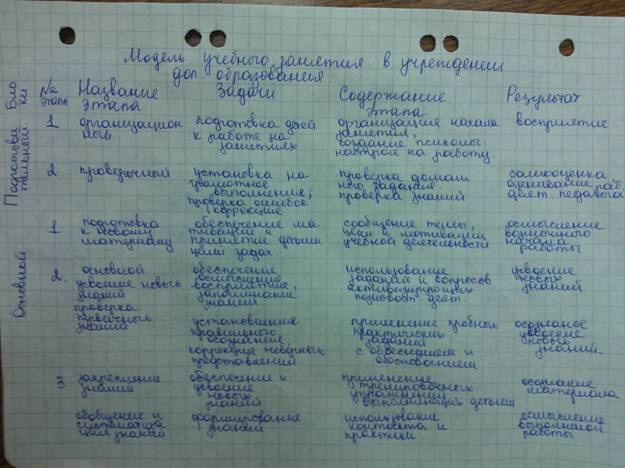 Модель учебного занятия в учреждении
доп. образования
Бло
ки
№
этапа
Название
этапа
Задачи
Содержание
этапа
Результат
Подготови
тельный
1
организацион
ный
подготовка детей
к работе на
занятиях
организация начала
занятия,
создание психолог.
настроя на работу.
восприятие
2
проверочный
установка на
грамотное
выполнение,
проверка ошибок
коррекция
проверка домаш
него задания.
проверка знаний
самооценка
оценивание раб.
деят. педагога
Основной
1
подготовка
к новому
материалу
обеспечение мо
тивации и
принятие детьми
цели задач
сообщение темы,
цели и мотивации
учебной деятельности
осмысление
начала
работы
2.
основной
усвоение новых
знаний
проверка
первичных
знаний
обеспечение
восприятие,
запоминание
знаний
использование
заданий и вопросов
активизирующих
познават. деят.
усвоение
новых
знаний
установление
правильного
осознание,
коррекция неверных
представлений
применение пробных
практических
заданий
с обоснованием
осознаное
усвоение
новых
знаний.
3
закрепление
знаний
обеспечение и
усвоение
новых
знаний
применение
тренировочных
упражнений
выполняющих детьми
осознание
материала
обобщение и
система­тиза
ция знаний
формирование
знаний
использование
и
практики
осмысление
выполненой
работы